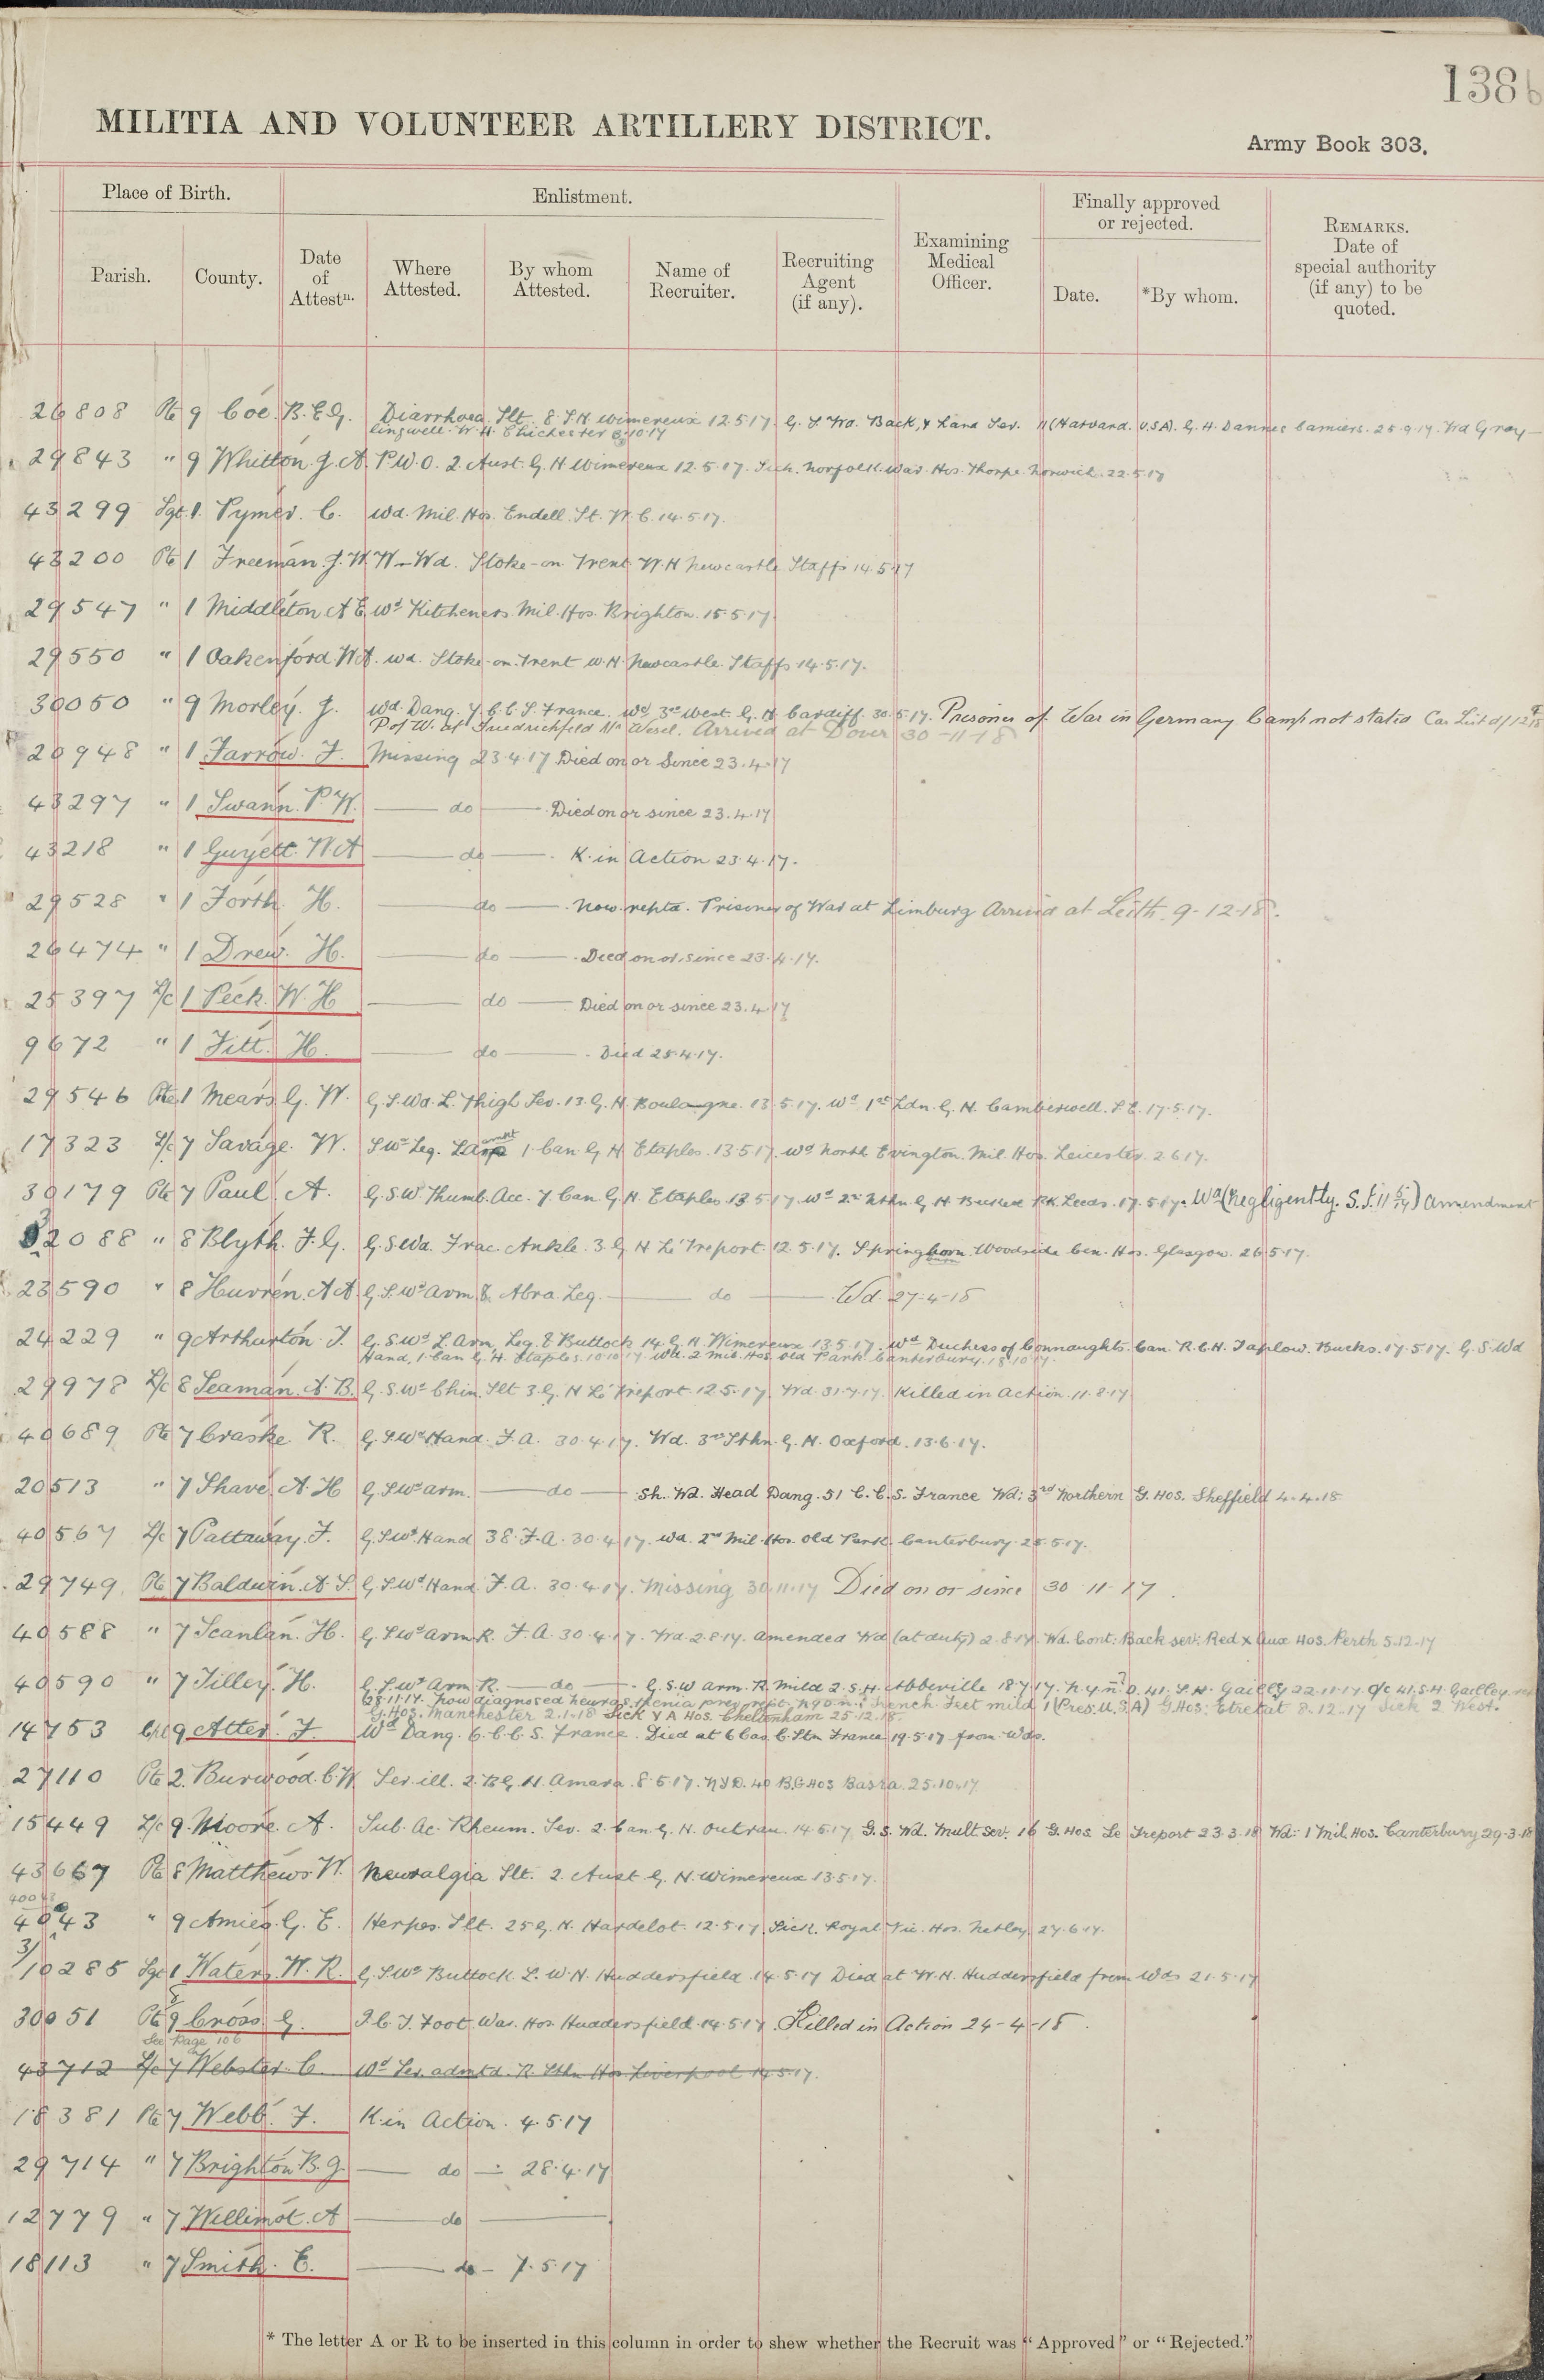 138b
MILITIA AND VOLUNTEER ARTILLERY DISTRICT.
Army Book 303.
Place of Birth. Enlistment. Examining Medical Officer. Finally approved or rejected. REMARKS. Date of special authority (if any) to be quoted.
Parish. County. Date of Attestn. Where Attested. By whom Attested. Name of Recruiter. Recruiting Agent (if any). Date. *By whom.
26808 Pte 9 Coe. B.E.G. Diarrhoea Slt. 8. S.H. Wimereux 12.5.17. G.S. Wd. Back, & Hand Sev. 11 (Harvard. U.S.A). G.H. Dannes Camiers. 25.9.17. Wd Gray-
lingwell. W.H. Chichester 8.10.17
29843 " 9 Whitton. J.A. P.U.O. 2. Aust. G.H Wimereux 12.5.17. Sick. Norfolk War. Hos. Thorpe. Norwich. 22.5.17
43299 Sgt. 1. Pymer. C. Wd. Mil. Hos. Endell. St. W.C. 14.5.17.
43200 Pte 1 Freeman. J.W.W - Wd. Stoke-on Trent W.H Newcastle Staffs 14.5.17
29547 " 1 Middleton A E Wd Kitcheners Mil. Hos. Brighton. 15.5.17.
29550 " 1 Oakenford W A. Wd. Stoke-on-Trent W.H. Newcastle. Staffs 14.5.17.
30050 " 9 Morley. J. Wd. Dang. 7. C.C.S. France. Wd 3rd West. G.H. Cardiff. 30.5.17. Prisoner of War in Germany Camp not stated Cas List d/
P of W. at Friedrichfeld Nr Wesel. Arrived at Dover 30-11-18
20948 " 1 Farrow. F. Missing 23.4.17 Died on or Since 23.4.17
43297 " 1 Swann. P.W. — do — Died on or since 23.4.17
43218 " 1 Guyett. W A — do — K. in Action 23.4.17.
29528 " 1 Forth. H. — do — Now reptd. Prisoner of War at Limburg Arrived at Leith. 9-12-18.
26474 " 1 Drew. H. — do — Died on or since 23.4.17.
25397 L/c 1 Peck. W. H — do — Died on or since 23.4.17
9672 " 1 Fitt. H. — do — Died 25.4.17.
29546 Pte 1 Mears G. W. G.S. Wd. L. Thigh Sev. 13. G.H. Boulogne. 13.5.17. Wd 1st Ldn. G.H. Camberwell. S E. 17.5.17.
17323 L/c 7 Savage. W. S Wd Leg. 1. Can G H Etaples. 13.5.17. Wd North Evington. Mil. Hos. Leicester 2.6.17.
30179 Pte 7 Paul A. G.S.W. Thumb. Acc. 7 Can G.H. Etaples 13.5.17. Wd 2nd Nthn G H Beckett Pk. Leeds. 17.5.17. Wd (Negligently. S.I. 11 5/17) Amendment
32088 " 8 Blyth. F.G. G.S. Wd. Frac. Ankle. 3. G H Le Treport. 12.5.17. Springburn Woodside Cen. Hos. Glasgow. 26.5.17.
23590 " 8 Huvren. A A G.S. Wd Arm & Abra. Leg. — do — Wd. 27-4-18
24229 " 9 Arthurton. J. G.S. Wd L. Arm, Leg. & Buttock 14. G.H. Wimereux 13.5.17. Wd Duchess of Connaughts. Can. R.C.H. Taplow. Bucks. 17.5.17. G.S. Wd
Hand, 1. Can G.H. Etaples. 10.10.17 Wd. 2 Mil. Hos. Old Park Canterbury. 18.10.17.
29978 L/c 8 Seaman. A. B. G.S. Wd Chin. Slt 3. G.H Le Treport. 12.5.17. Wd. 31.7.17. Killed in Action. 11.8.17
40689 Pte 7 Craske R. G.S Wd Hand. F.A. 30.4.17. Wd. 3rd Sthn. G.H. Oxford. 13.6.17.
20513 " 7 Shave A. H G.S Wd Arm. — do — Sh. Wd. Head Dang. 51 C.C.S. France Wd: 3rd Northern G. Hos. Sheffield 4.4.18
40567 L/c 7 Pattaway. F. G.S Wd. Hand 38. F.A. 30.4.17. Wd. 2nd Mil. Hos. Old Park. Canterbury. 25.5.17.
29749. Pte 7 Baldwin. A. S. G.S. Wd Hand. F.A. 30.4.17. Missing 30.11.17 Died on or since 30 11-17.
40588 " 7 Scanlan. H. G.S Wd Arm. R. F.A. 30.4.17. Wd. 2.8.17. Amended Wd (at duty) 2.8.17. Wd. Cont: Back sev: Red X Aux Hos. Perth 5.12.17
40590 " 7 Tilley. H. G.S. Wd Arm. R. — do — G.S.W Arm. R. Mild 2.S.H. Abbeville 18.7.17. N.Y.D. 41. S.H. Gailly 22.11.17. O/c 41. S.H. Gailley
28.11.17. Now diagnosed Neurasthenia prev. rept. N.Y.D.N. Trench Feet mild 1 (Pres. U.S.A) G. Hos. Etretat 8.12.17 Sick 2 West.
G. Hos. Manchester 2.1.18 Sick V A Hos. Cheltenham 25.12.18.
14753 Cpl 9 Atter. F. Wd Dang. 6. C.C.S. France. Died at 6 Cas. C. Stn France 19.5.17 from Wds.
27110 Pte 2. Burwood. C.W Ser. ill. 2. B.G.H. Amara. 8.5.17. N.Y.D. 40 B.G Hos Basra. 25.10.17
15449 L/c 9. Moore. A. Sub. Ac. Rheum. Sev. 2. Can. G.H. Outreau. 14.5.17. G.S. Wd. Mult Sev. 16 G. Hos Le Treport 23.3.18 Wd: 1 Mil. Hos. Canterbury 29.3.18
43667 Pte 8 Matthews W. Neuralgia Slt. 2. Aust. G.H. Wimereux 13.5.17.
4043 " 9 Amies. G. E. Herpes. Slt. 25 G.H. Hardelot. 12.5.17. Sick. Royal Vic. Hos. Netley. 27.6.17.
3/10285 Sgt 1 Waters. W. R. G.S Wd Buttock L. W.H. Huddersfield 14.5.17 Died at W.H. Huddersfield from Wds 21.5.17
30051 Pte 9 Cross G. I.C.T. Foot. War. Hos. Huddersfield. 14.5.17. Killed in Action 24-4-18.
See Page 106
43712 L/c 7 Webster. C. Wd Sev. admtd. R. Sthn Hos Liverpool 14.5.17.
18381 Pte 7 Webb. F. K. in Action. 4.5.17
29714 " 7 Brighton B. G. — do — 28.4.17
12779 " 7 Willimot. A — do —
18113 " 7 Smith. E. — do — 7.5.17
* The letter A or R to be inserted in this column in order to shew whether the Recruit was "Approved" or "Rejected."